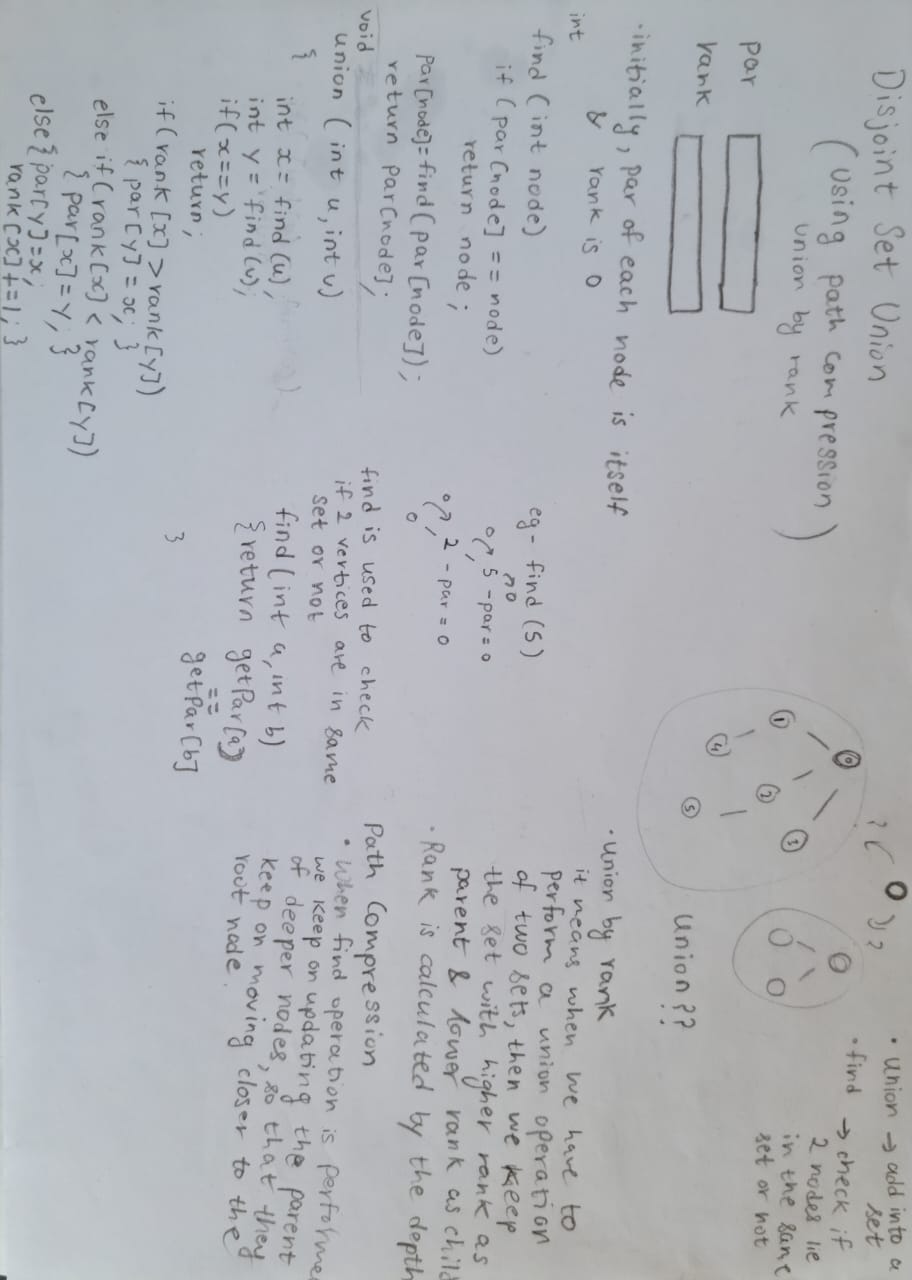 Disjoint Set Union
(Using path compression
union by rank)
par
rank
·initially, par of each node is itself
& rank is 0
int
find (int node)
if (par[node] == node)
return node;
par[node]=find(par[node]);
return par[node];
void
union (int u, int v)
{
int x = find(u);
int y = find(v);
if(x==y)
return;
if(rank[x] > rank[y])
{ par[y] = x; }
else if(rank[x] < rank[y])
{ par[x] = y; }
else{ par[y]=x;
rank[x]+=1; }
eg- find(5)
0
0 5 -par = 0
0 2 - par = 0
0
find is used to check
if 2 vertices are in same
set or not
find(int a, int b)
{return getPar[a]
==
getPar[b]
}
? ?
0
1 2 3
4
5
Union??
· Union → add into a
set
· find → check if
2 nodes lie
in the same
set or not
· Union by rank
it means when we have to
perform a union operation
of two sets, then we keep
the set with higher rank as
parent & lower rank as child
· Rank is calculated by the depth
Path Compression
· When find operation is performe
we keep on updating the parent
of deeper nodes, so that they
keep on moving closer to the
root node.